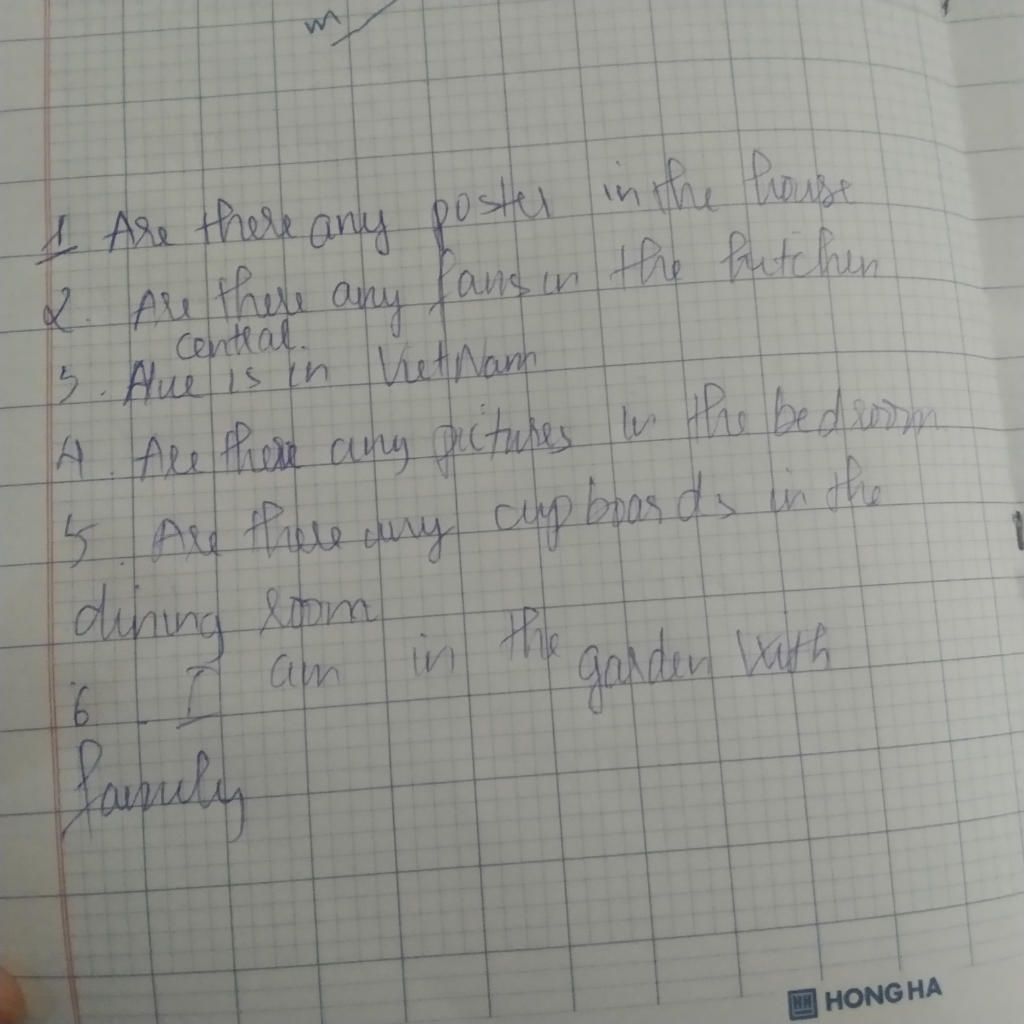 m
1 Are there any poster in the house
2. Are there any fans in the kitchen
central.
3. Hue is in VietNam
4. Are there any pictures in the bedroom
5. Are there any cupboards in the
dining room
6 - I am in the garden with
family
HONG HA